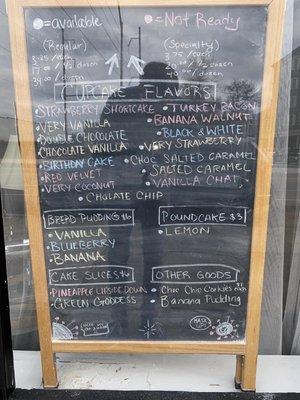 =available
=Not Ready
(Regular)
(Specialty)
3.25/each
3.75/each
17.00 1/2 dozen
20.00 1/2 dozen
34.00 dozen
40.00 dozen
CUPCAKE FLAVORS
STRAWBERRY SHORTCAKE
TURKEY BACON
VERY VANILLA
BANANA WALNUT
DOUBLE CHOCOLATE
BLACK & WHITE
CHOCOLATE VANILLA
VERY STRAWBERRY
BIRTHDAY CAKE
CHOC SALTED CARAMEL
RED VELVET
SALTED CARAMEL
VERY COCONUT
VANILLA CHAI
CHOCOLATE CHIP
BREAD PUDDING $6
POUNDCAKE $3
VANILLA
LEMON
BLUEBERRY
BANANA
CAKE SLICES $6
OTHER GOODS
PINEAPPLE UPSIDE DOWN
CHOC CHIP COOKIES
GREEN GODDESS
BANANA PUDDING
MASK UP!